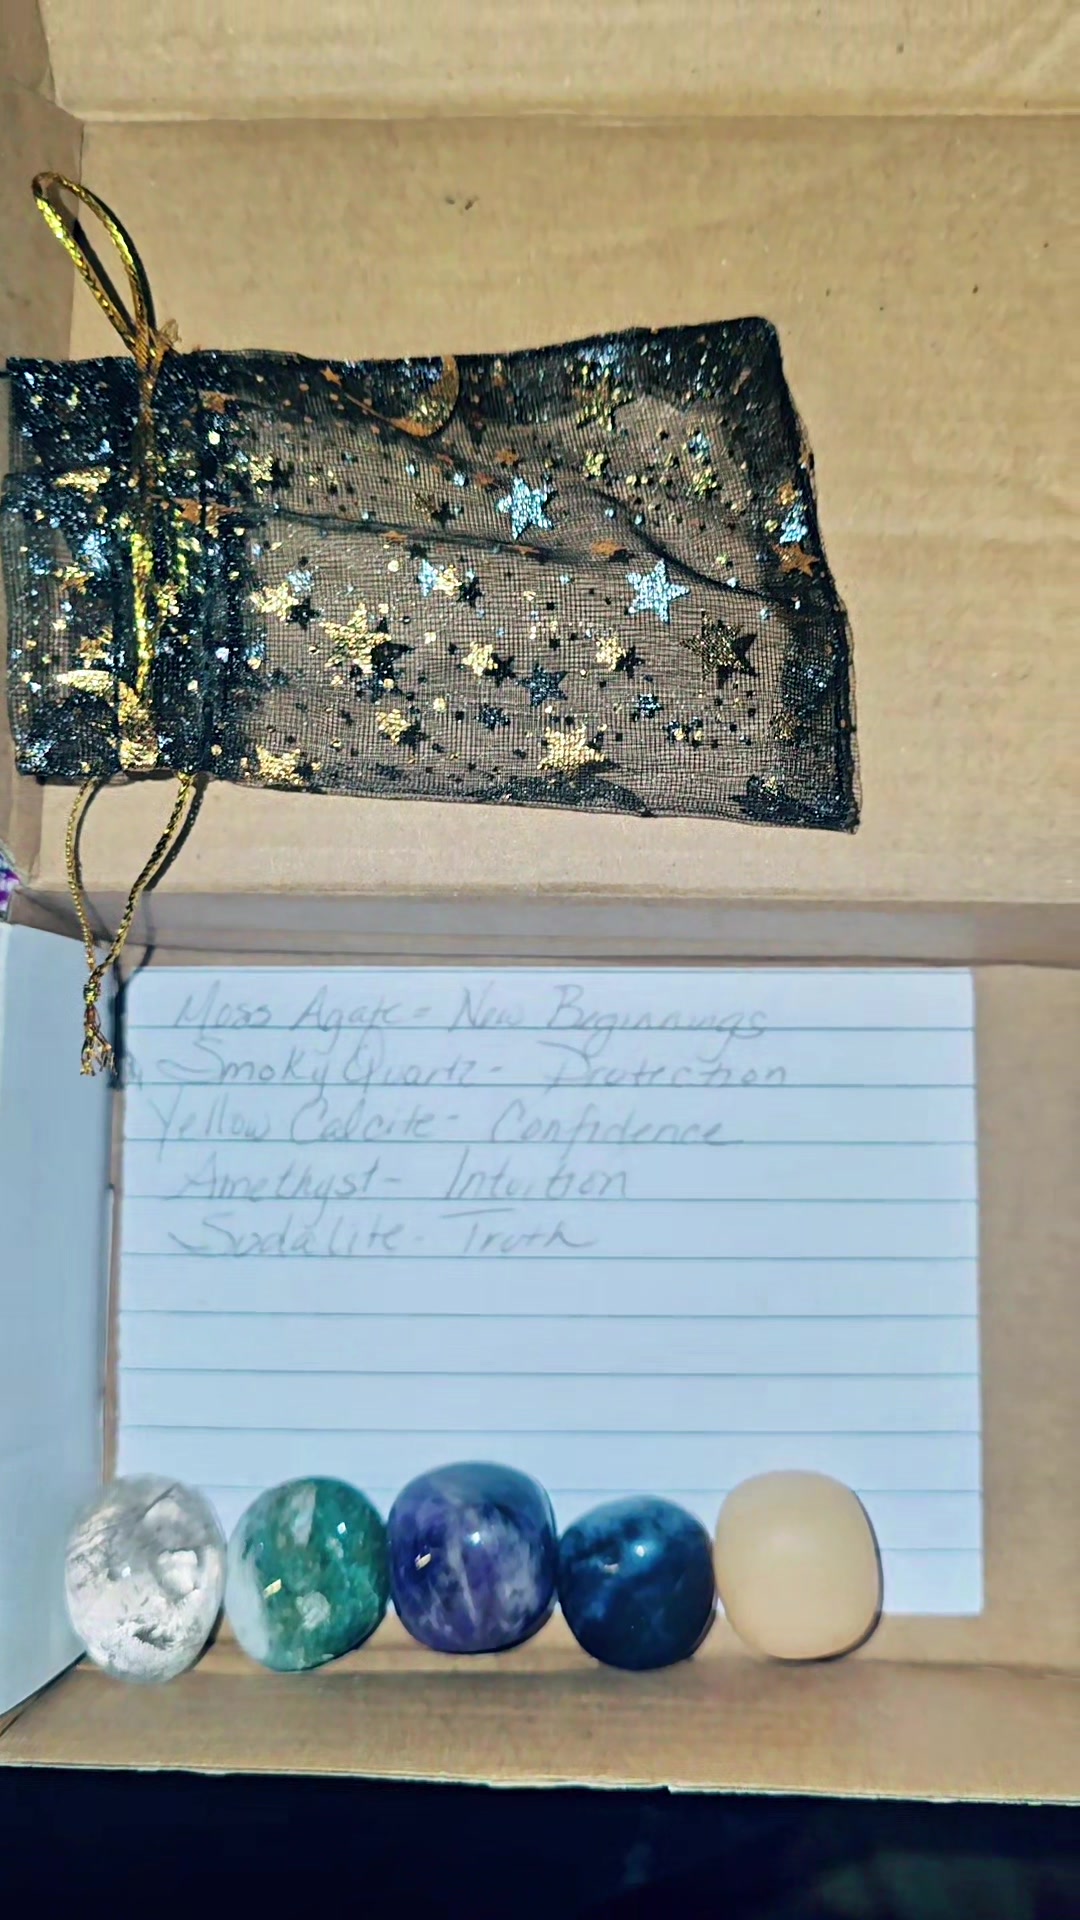 Moss Agate = New Beginnings
Smoky Quartz - Protection
Yellow Calcite - Confidence
Amethyst - Intuition
Sodalite - Truth